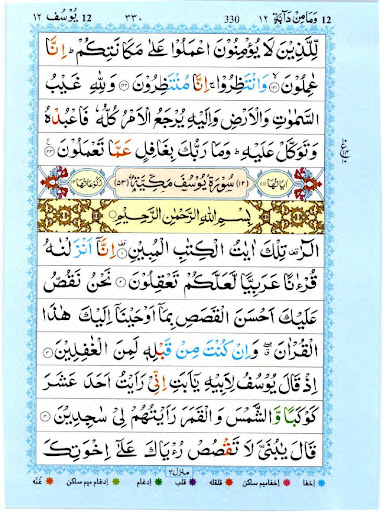 12 وَمَا مِنْ دَآبَّةٍ ١٢ 330 ٣٣٠ 12 يُوْسُف ١٢
لِّلَّذِيْنَ لَا يُؤْمِنُوْنَ اعْمَلُوْا عَلٰى مَكَانَتِكُمْ ؕ اِنَّا
عٰمِلُوْنَ ۙ﴿١٢١﴾ وَانْتَظِرُوْا ۚ اِنَّا مُنْتَظِرُوْنَ ﴿١٢٢﴾ وَلِلّٰهِ غَيْبُ
السَّمٰوٰتِ وَالْاَرْضِ وَاِلَيْهِ يُرْجَعُ الْاَمْرُ كُلُّهٗ فَاعْبُدْهُ
وَتَوَكَّلْ عَلَيْهِ ؕ وَمَا رَبُّكَ بِغَافِلٍ عَمَّا تَعْمَلُوْنَ ﴿١٢٣﴾
اٰيَاتُهَا ١١١ (١٢) سُوْرَةُ يُوْسُفَ مَكِّيَّةٌ (٥٣) رُكُوْعَاتُهَا ١٢
بِسْمِ اللّٰهِ الرَّحْمٰنِ الرَّحِيْمِ
الٓرٰ ۫ تِلْكَ اٰيٰتُ الْكِتٰبِ الْمُبِيْنِ ۟ ﴿١﴾ اِنَّاۤ اَنْزَلْنٰهُ
قُرْءٰنًا عَرَبِيًّا لَّعَلَّكُمْ تَعْقِلُوْنَ ﴿٢﴾ نَحْنُ نَقُصُّ
عَلَيْكَ اَحْسَنَ الْقَصَصِ بِمَاۤ اَوْحَيْنَاۤ اِلَيْكَ هٰذَا
الْقُرْاٰنَ ۖ وَاِنْ كُنْتَ مِنْ قَبْلِهٖ لَمِنَ الْغٰفِلِيْنَ ﴿٣﴾
اِذْ قَالَ يُوْسُفُ لِاَبِيْهِ يٰۤاَبَتِ اِنِّيْ رَاَيْتُ اَحَدَ عَشَرَ
كَوْكَبًا وَّالشَّمْسَ وَالْقَمَرَ رَاَيْتُهُمْ لِيْ سٰجِدِيْنَ ﴿٤﴾
قَالَ يٰبُنَيَّ لَا تَقْصُصْ رُءْيَاكَ عَلٰۤى اِخْوَتِكَ
منزل ٣
اخفا اخفا میم ساکن قلقلہ قلب ادغام ادغام میم ساکن غنّہ